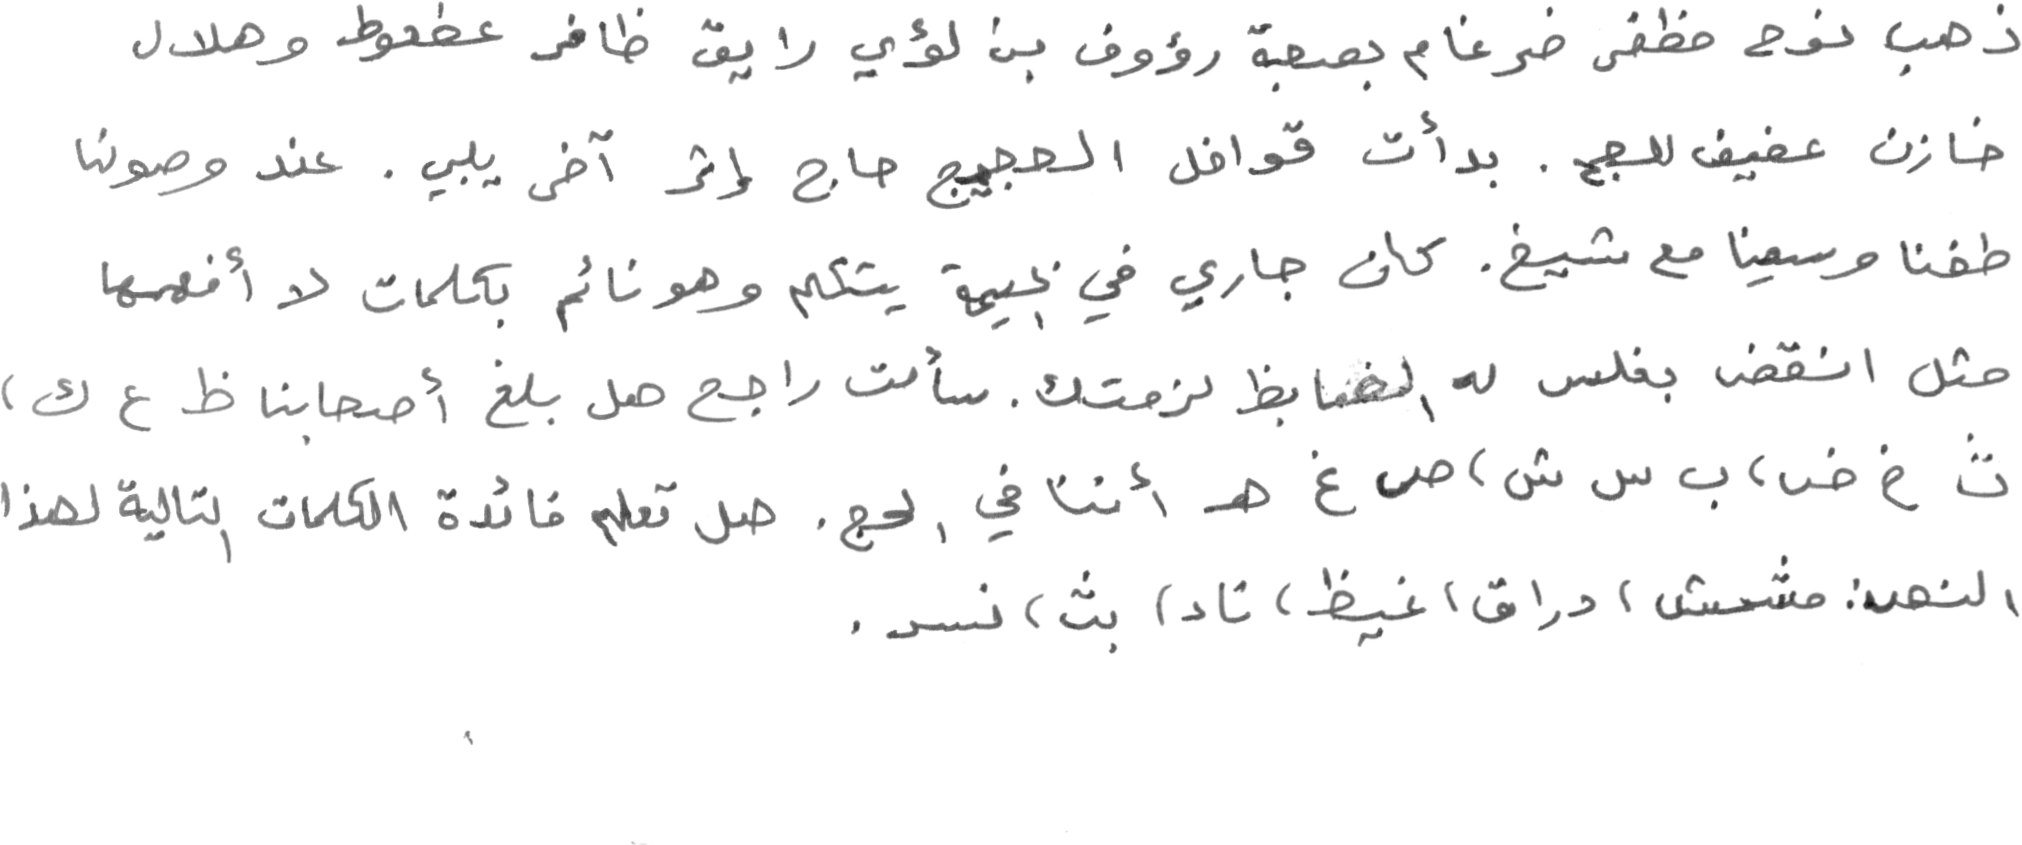 ذهب نوح مظفر ضرغام بصحبة رؤوف بن لؤي رايق ظافر عطعوط وهلال
خازن عفيف للحج . بدأت قوافل الحجيج حاج إثر آخر يلبي . عند وصولنا
طفنا وسعينا مع شيخ . كان جاري في الخيمة يتكلم وهو نائم بكلمات لا أفهمها
مثل انقض بفلس له الضابط لزمتك . سألت راجح هل بلغ أصحابنا ظ ع ك ،
ث خ ض ، ب س ش ، ص غ هـ أننا في الحج . هل تعلم فائدة الكلمات التالية لهذا
النص : مشمش ، دراق ، غيظ ، ناد ، بث ، نسر .